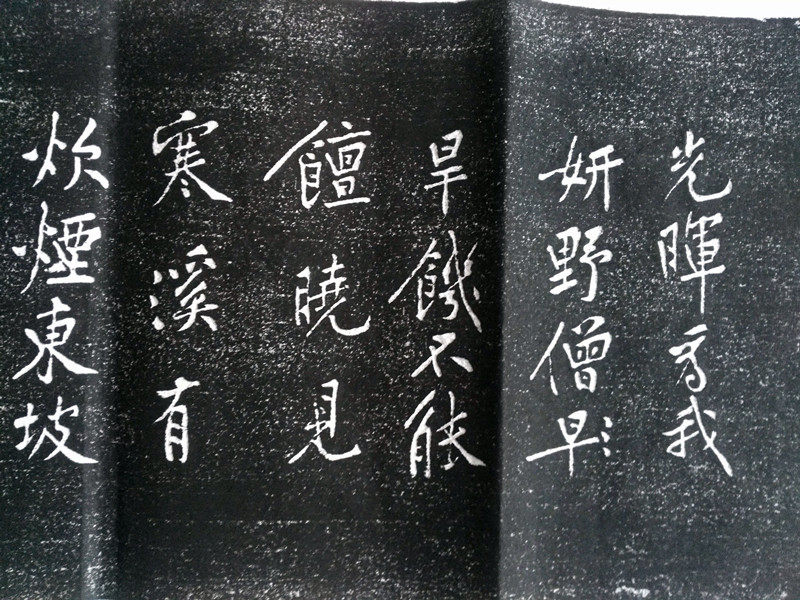 光暉為我
妍野僧早
旱饑不能
饘曉見
寒溪有
炊煙東坡